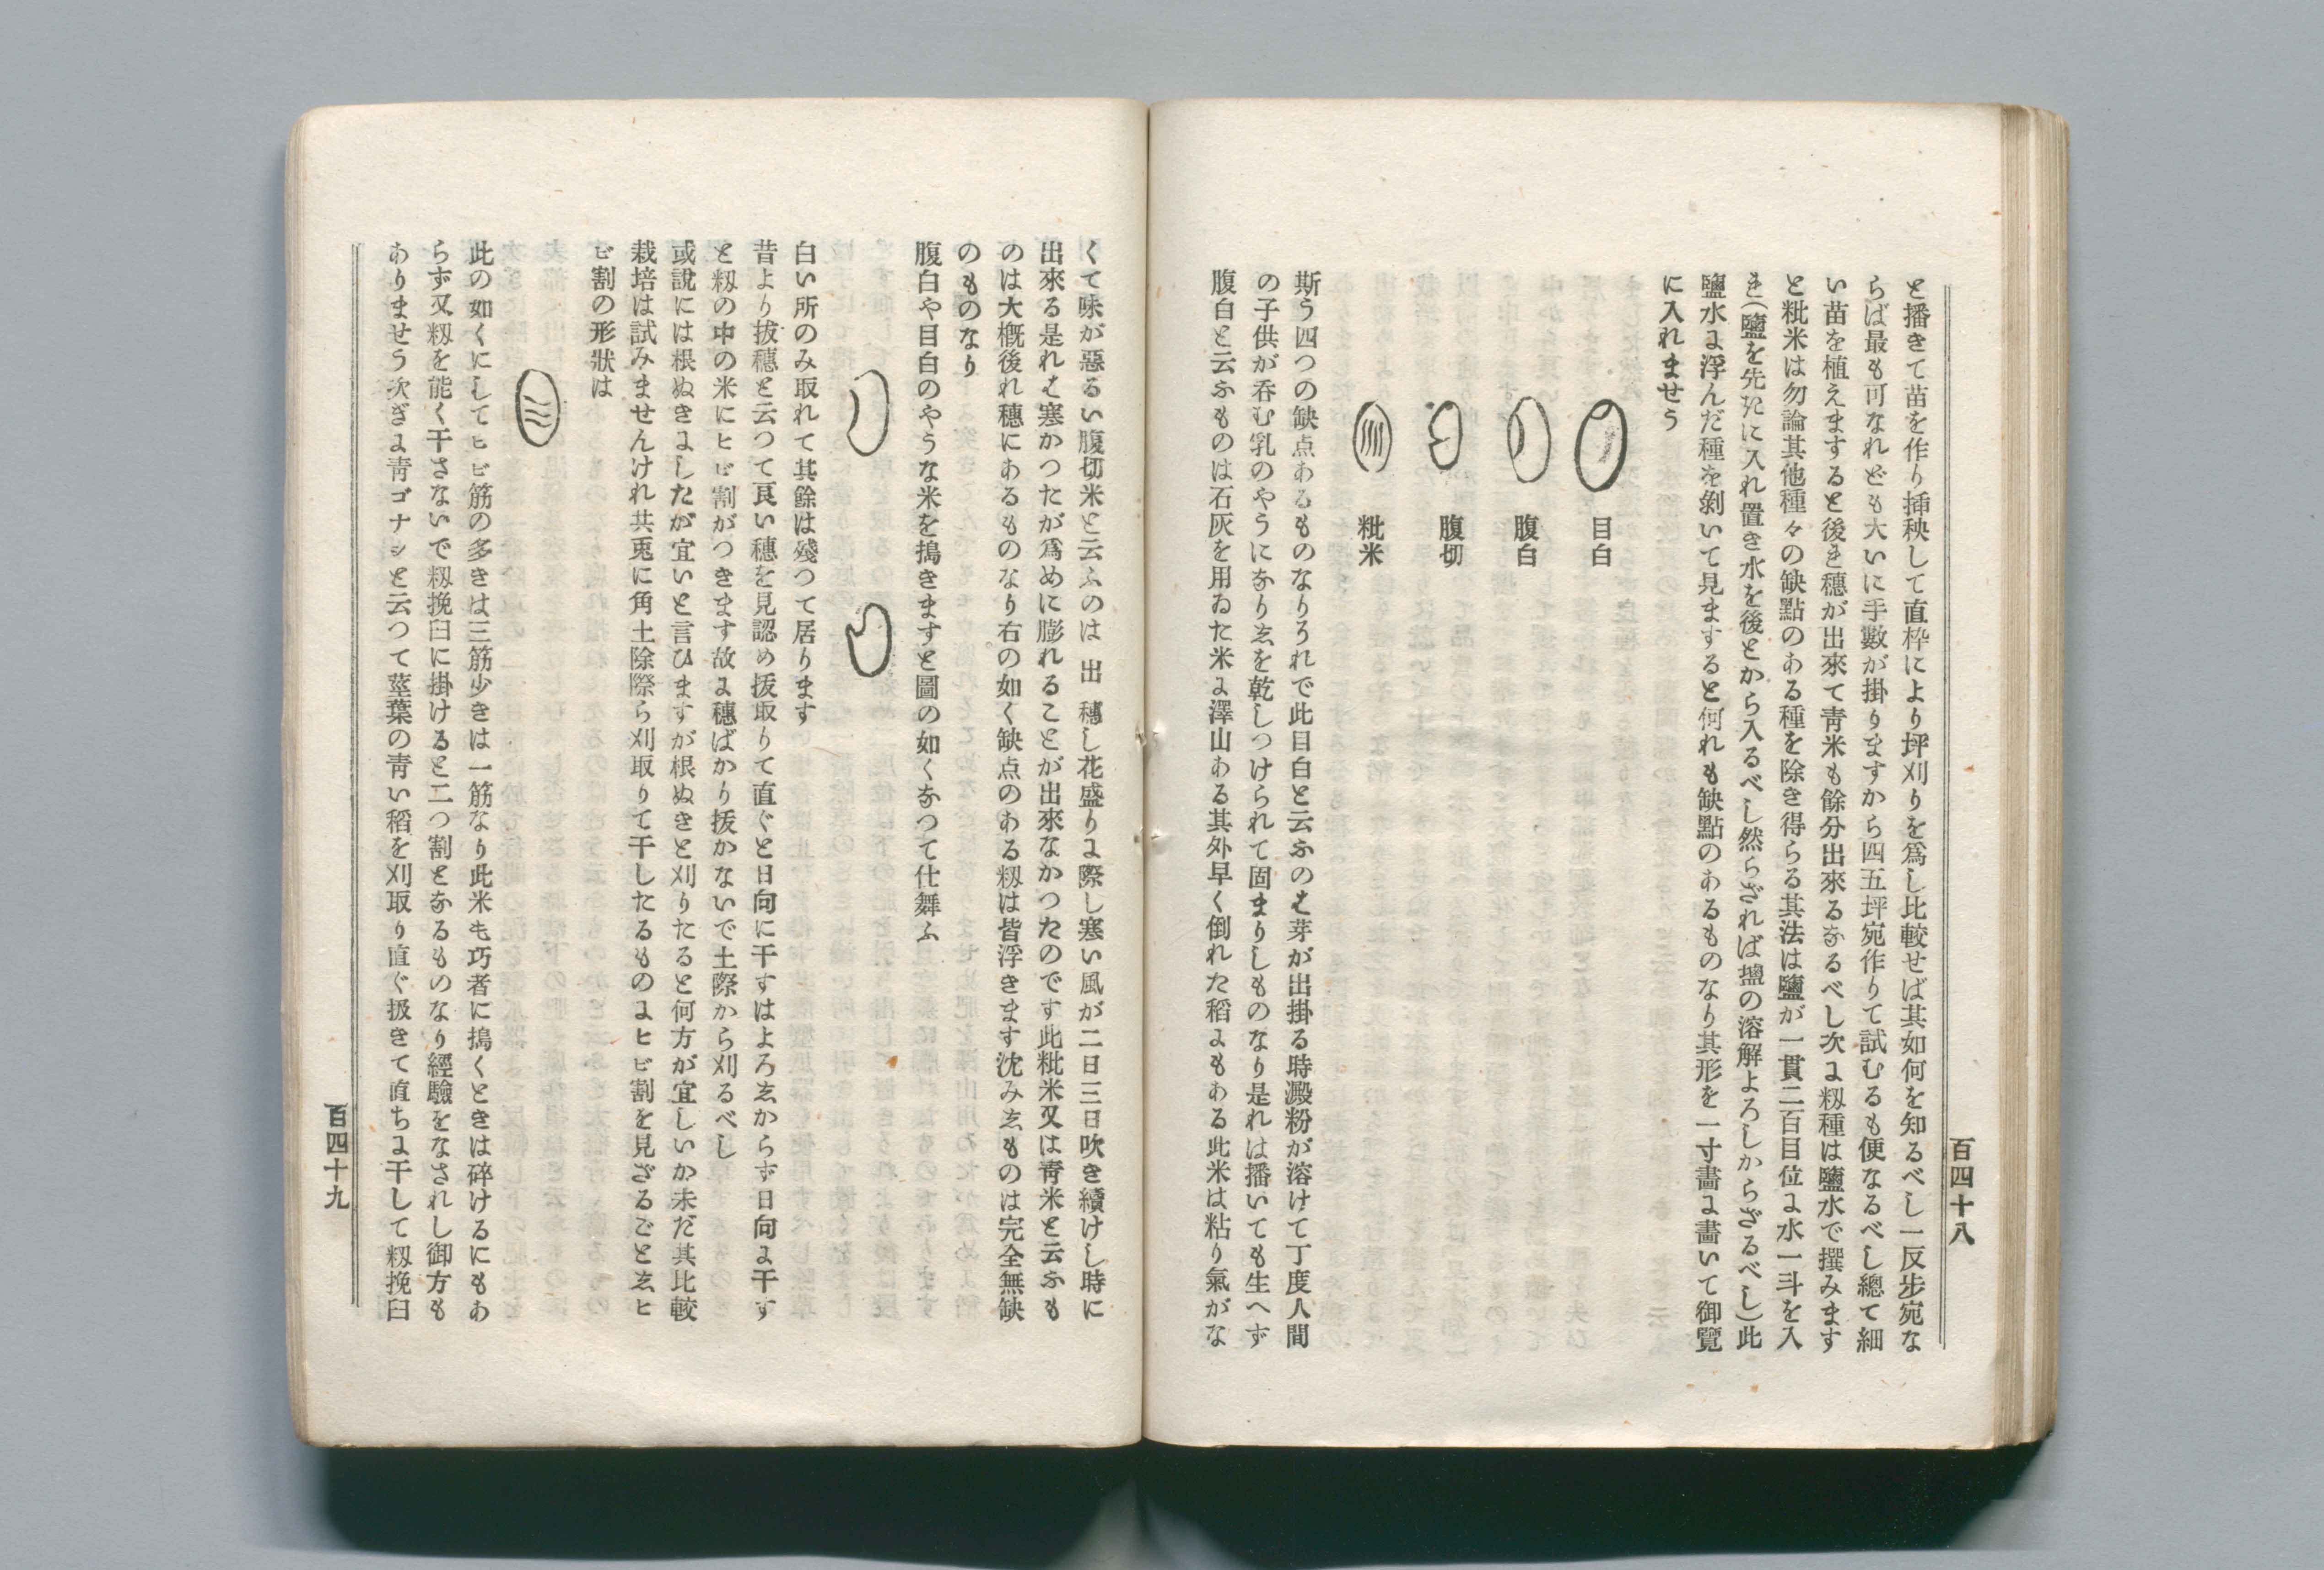 百四十八
と播きて苗を作り挿秧して直枠により坪刈りを爲し比較せば其如何を知るべし一反步宛な
らば最も可なれども大いに手數が掛りますから四五坪宛作りて試むるも便なるべし總て細
い苗を植えますると後き穗が出來て靑米も餘分出來るなるべし次に籾種は鹽水で撰みます
と粃米は勿論其他種々の缺點のある種を除き得らる其法は鹽が一貫二百目位に水一斗を入
き(鹽を先だに入れ置き水を後とから入るべし然らざれば塩の溶解よろしからざるべし)此
鹽水に浮んだ種を剝いて見ますると何れも缺點のあるものなり其形を一寸畵に畵いて御覽
に入れませう
目白
腹白
腹切
粃米
斯う四つの缺点あるものなりろれで此目白と云ふのは芽が出掛る時澱粉が溶けて丁度人間
の子供が呑む乳のやうになり之を乾しつけられて固まりしものなり是れは播いても生へず
腹白と云ふものは石灰を用ゐた米に澤山ある其外早く倒れた稻にもある此米は粘り氣がな
くて味が惡るい腹切米と云ふのは出穗し花盛りに際し寒い風が二日三日吹き續けし時に
出來る是れは寒かつたが爲めに膨れることが出來なかつたのです此粃米又は靑米と云ふも
のは大槪後れ穗にあるものなり右の如く缺点のある籾は皆浮きます沈みゑものは完全無缺
のものなり
腹白や目白のやうな米を搗きますと圖の如くなつて仕舞ふ
白い所のみ取れて其餘は殘つて居ります
昔より拔穗と云つて良い穗を見認め拔取りて直ぐと日向に干すはよろゑからず日向に干す
と籾の中の米にヒビ割がつきます故に穗ばかり拔かないで土際から刈るべし
或說には根ぬきにしたが宜いと言ひますが根ぬきと刈りたると何方が宜しいか未だ其比較
栽培は試みませんけれ共兎に角土除際ら刈取りて干したるものにヒビ割を見ざるごとゑヒ
ビ割の形狀は
此の如くにしてヒビ筋の多きは三筋少きは一筋なり此米も巧者に搗くときは碎けるにもあ
らず又籾を能く干さないで籾挽臼に掛けると二つ割となるものなり經驗をなされし御方も
ありませう次ぎに靑ゴナシと云つて莖葉の靑い稻を刈取り直ぐ扱きて直ちに干して籾挽臼
百四十九